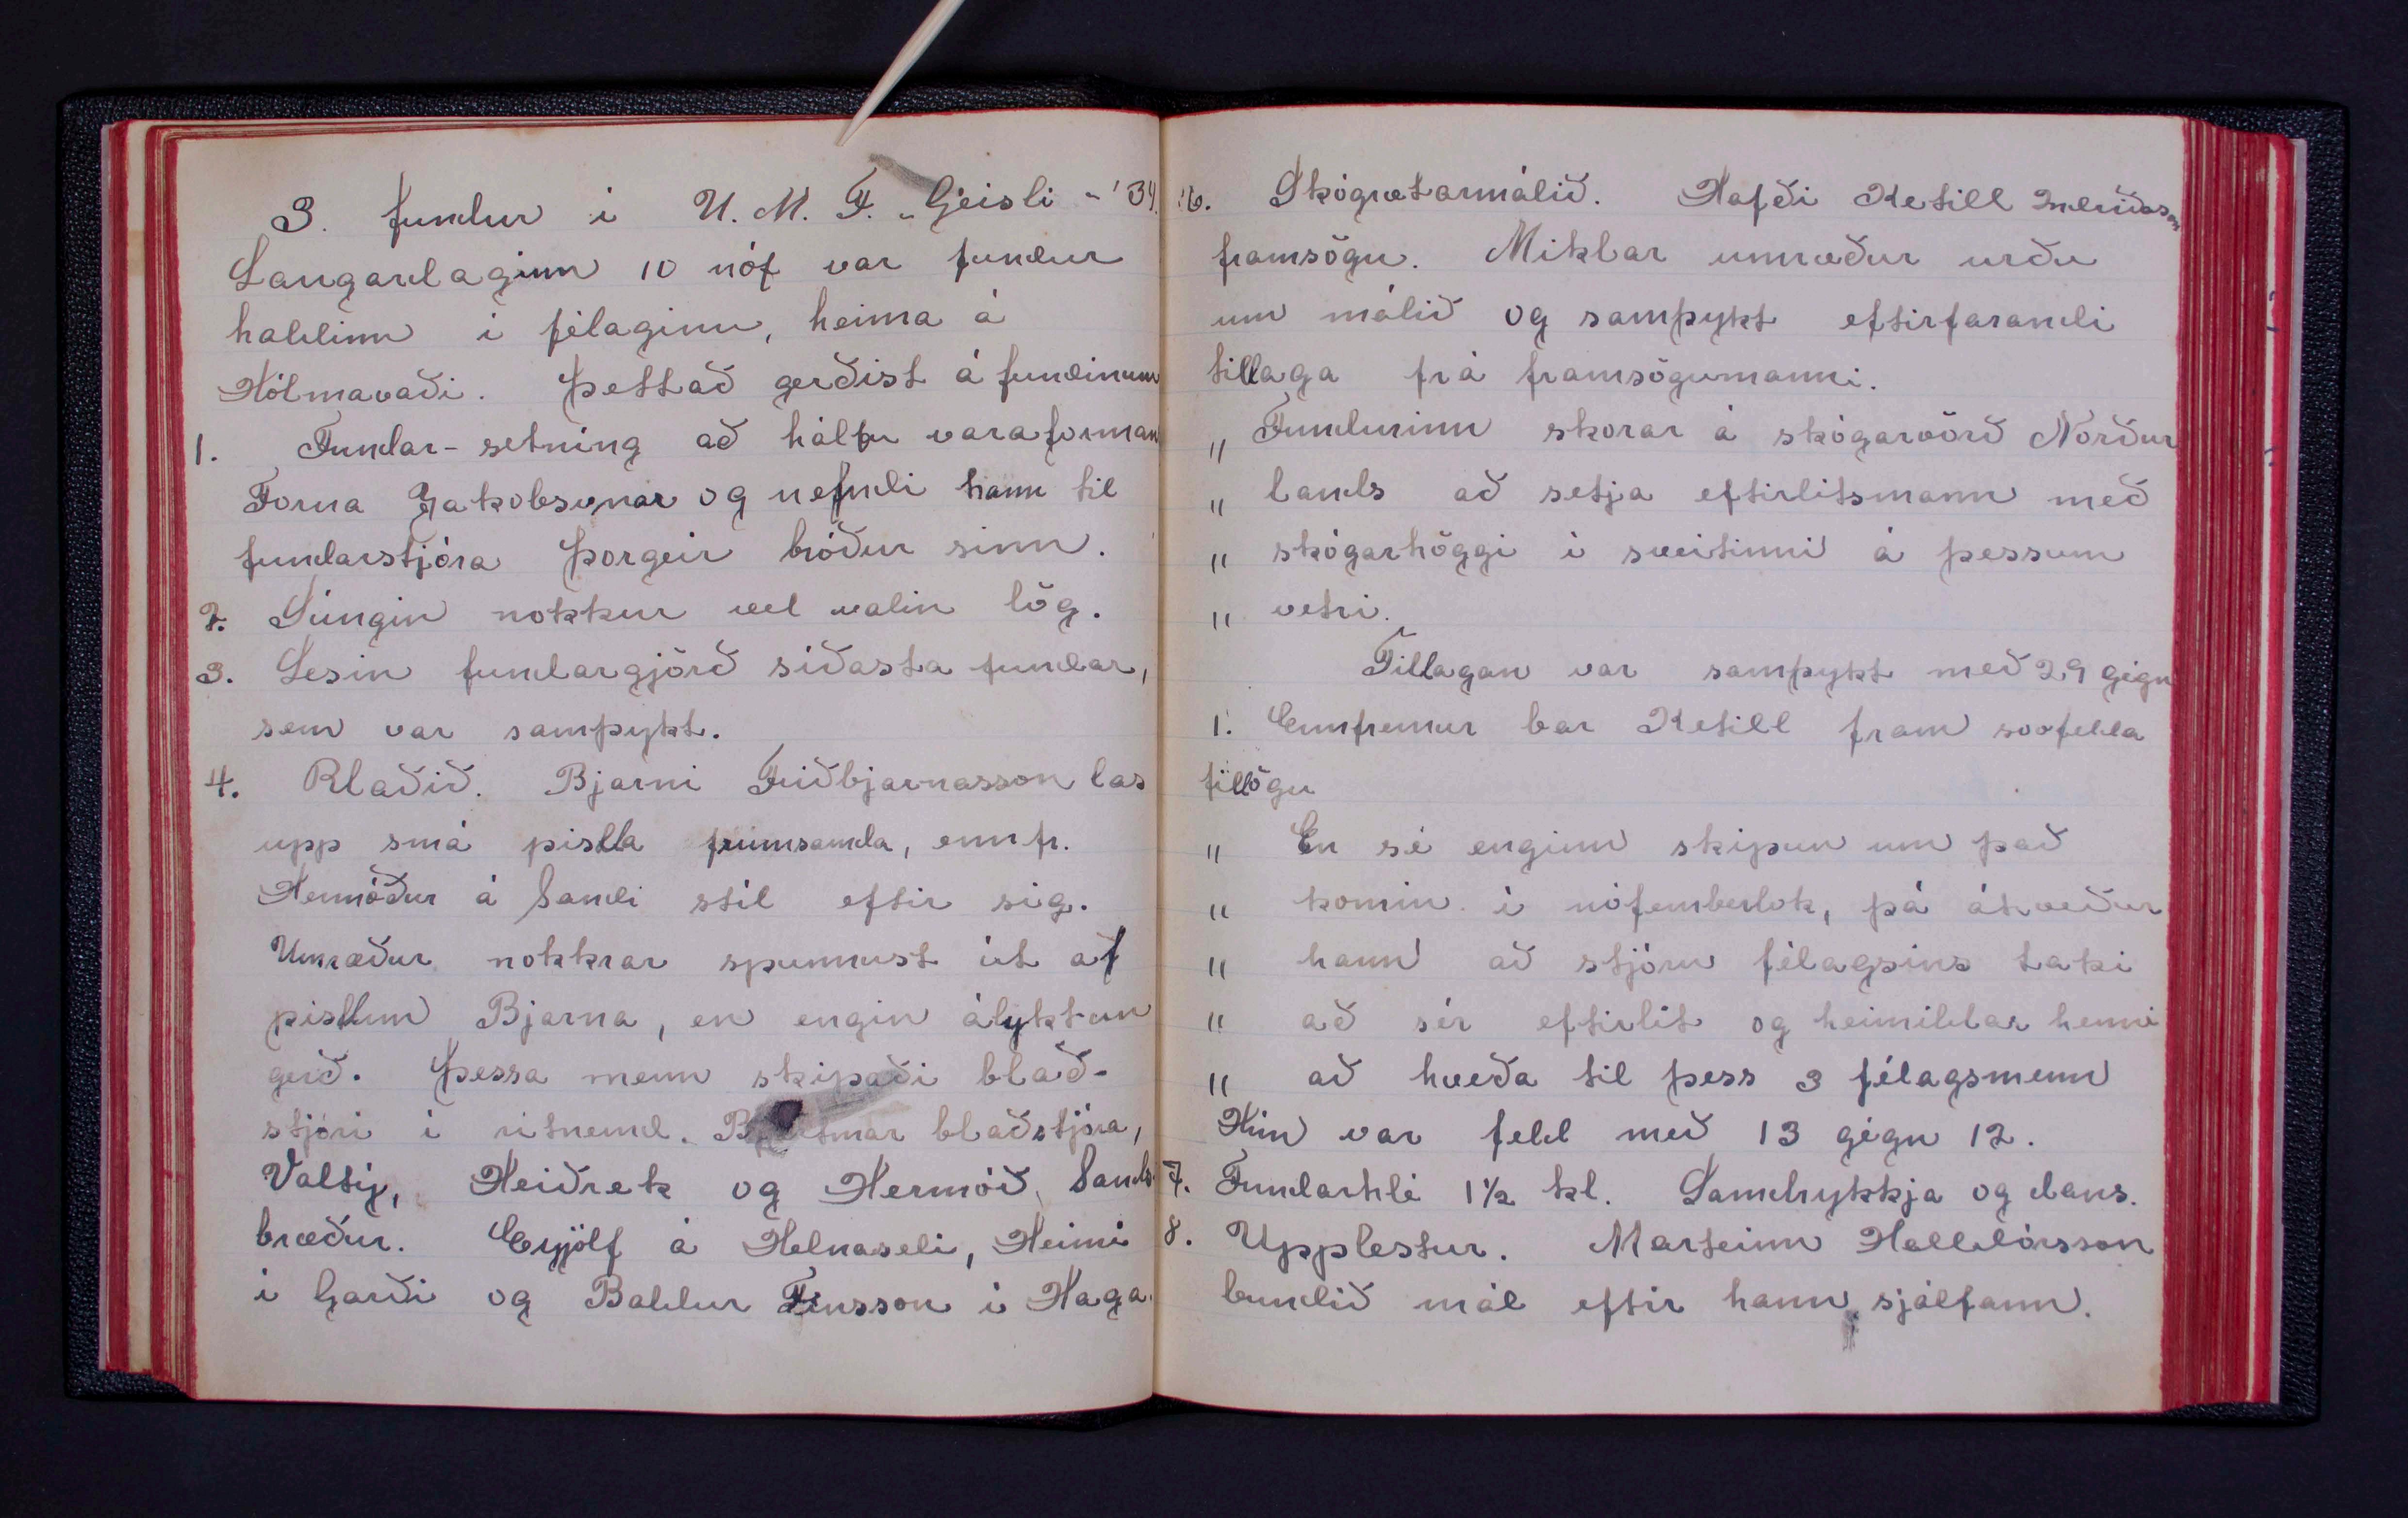 3. fundur i U. M. F. „Geisli" '34.
Laugardaginn 10 nóf var fundur
haldinn i félaginu, heima á
Hólmavaði. Þettað gerðist á fundinum
1. Fundar-setning að hálfu varaforman
Forna Jakobsonar og nefndi hann til
fundarstjóra Þorgeir bróður sinn.
2. Súngin nokkur vel valin lög.
3. Lesin fundargjörð síðasta fundar,
sem var samþykt.
4. Blaðið. Bjarni Friðbjarnasson las
upp smá pistla frumsamda, enn fr.
Hermóður á Sandi stíl eftir sig.
Umræður nokkrar spunnust út af
pistlum Bjarna, en engin ályktun
gerð. Þessa menn skipaði blað-
stjóri i ritnemd. blaðstjóra,
Valtij, Heiðrek og Hermóð, Sands
bræður. Eyjólf á Helnaseli, Heimi
i Garði og Baldur Finsson i Haga.
6. Skógrætarmálið. Hafði Ketill Indriðason
framsögu. Miklar umræður urðu
um málið og samþykt eftirfarandi
tillaga frá framsögumanni.
„ Fundurinn skorar á skógarvörð Norður
„ lands að setja eftirlitsmann með
„ skógarhöggi i sveitinni á þessum
„ vetri.
Tillagan var samþykt með 29 gégn
1. Ennfremur bar Ketill fram svofelda
tillögu
„ En sé enginn skipun um það
„ komin i nófemberlok, þá ákveður
„ hann að stjórn félagsins taki
„ að sér eftirlit og heimildar henni
„ að hveða til þess 3 félagsmenn
Hún var feld með 13 gégn 12.
7. Fundarhlé 1½ kl. Samdrykkja og dans.
8. Upplestur. Marteinn Halldórsson
bundið mál eftir hann sjálfann.